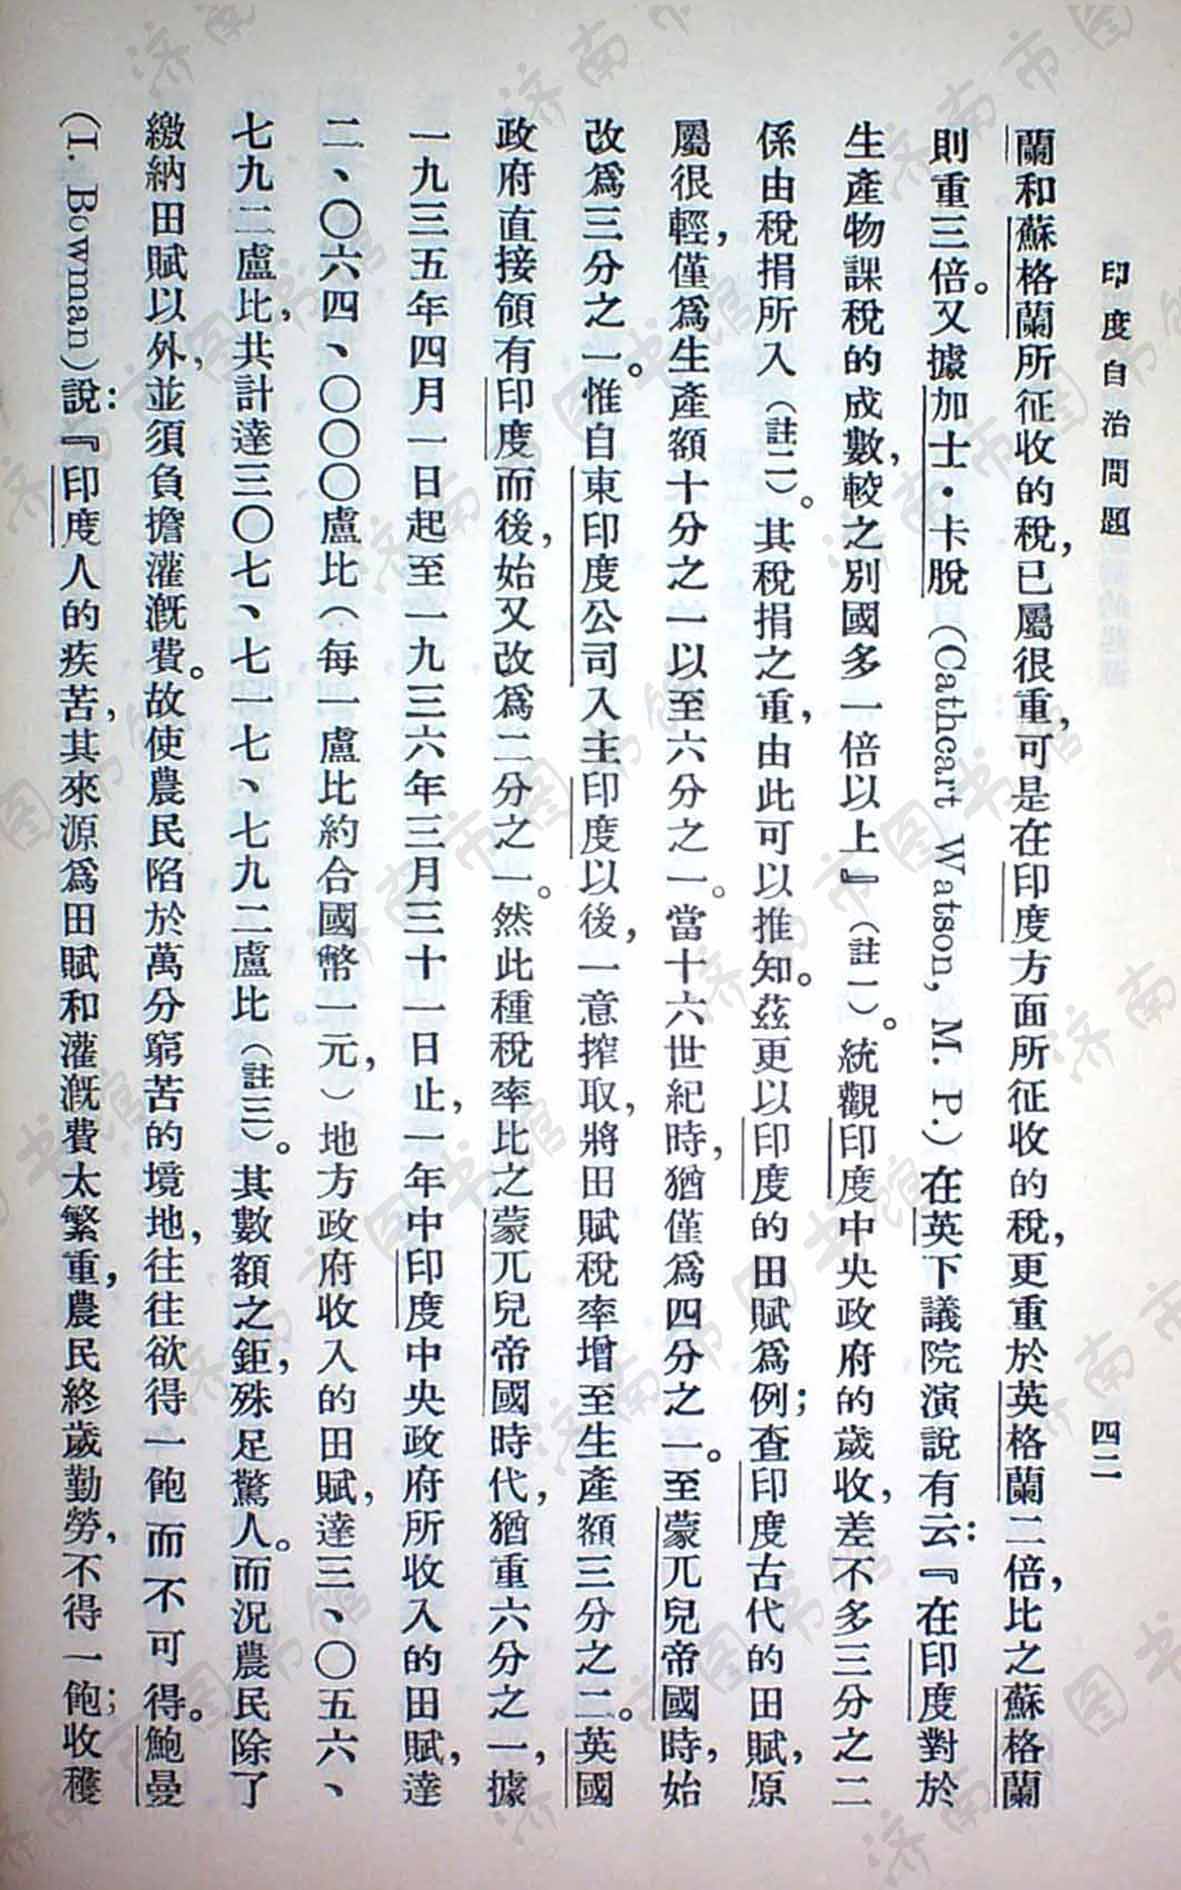 印度自治問題
四二
蘭和蘇格蘭所征收的稅，已屬很重，可是在印度方面所征收的稅，更重於英格蘭二倍，比之蘇格蘭
則重三倍。又據加士・卡脫（Cathcart Watson, M. P.）在英下議院演說有云：『在印度對於
生產物課稅的成數，較之別國多一倍以上』（註一）。統觀印度中央政府的歲收，差不多三分之二
係由稅捐所入（註二）。其稅捐之重，由此可以推知。茲更以印度的田賦爲例；查印度古代的田賦，原
屬很輕，僅爲生產額十分之一以至六分之一。當十六世紀時，猶僅爲四分之一。至蒙兀兒帝國時，始
改爲三分之一。惟自東印度公司入主印度以後，一意搾取，將田賦稅率增至生產額三分之二。英國
政府直接領有印度而後，始又改爲二分之一。然此種稅率比之蒙兀兒帝國時代，猶重六分之一，據
一九三五年四月一日起至一九三六年三月三十一日止，一年中印度中央政府所收入的田賦，達
二、〇六四、〇〇〇盧比（每一盧比約合國幣一元，）地方政府收入的田賦，達三、〇五六、
七九二盧比，共計達三〇七、七一七、七九二盧比（註三）。其數額之鉅，殊足驚人。而況農民除了
繳納田賦以外，並須負擔灌漑費。故使農民陷於萬分窮苦的境地，往往欲得一飽而不可得。鮑曼
（I. Bowman）說：『印度人的疾苦，其來源爲田賦和灌漑費太繁重，農民終歲勤勞，不得一飽；收穫
济南市图书馆